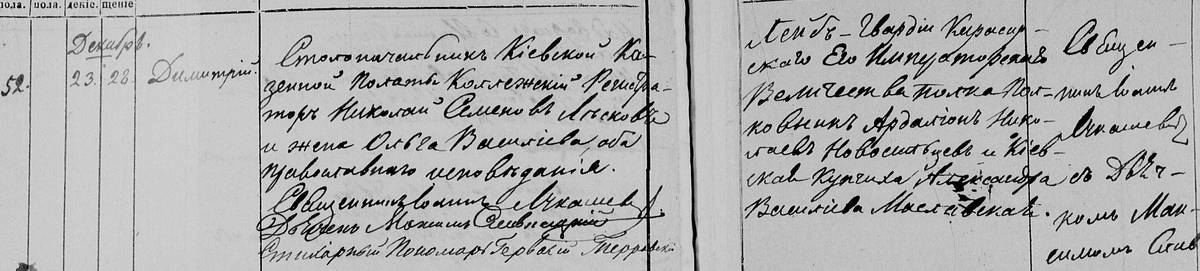 пола. пола. декіс. щеніе
Декабрь.
52. 23. 28. Димитрій.
Столоначальникъ Кіевской Ка-
зенной Палаты Коллежскій Регистра-
торъ Николай Семеновъ
и жена Ольга Васильева, оба
православнаго исповѣданія.
Священникъ Іоаннъ
Дьяконъ Максимъ
Стихарный Пономарь
Лейбъ-Гвардіи Кирасир-
скаго Его Императорскаго
Величества полка Пол-
ковникъ Ардаліонъ Нико-
лаевъ Новосильцевъ и Кіев-
ская Купчиха Александра
Васильева Маславская.
Священ-
никъ Іоаннъ
съ Дья-
кономъ Мак-
симомъ